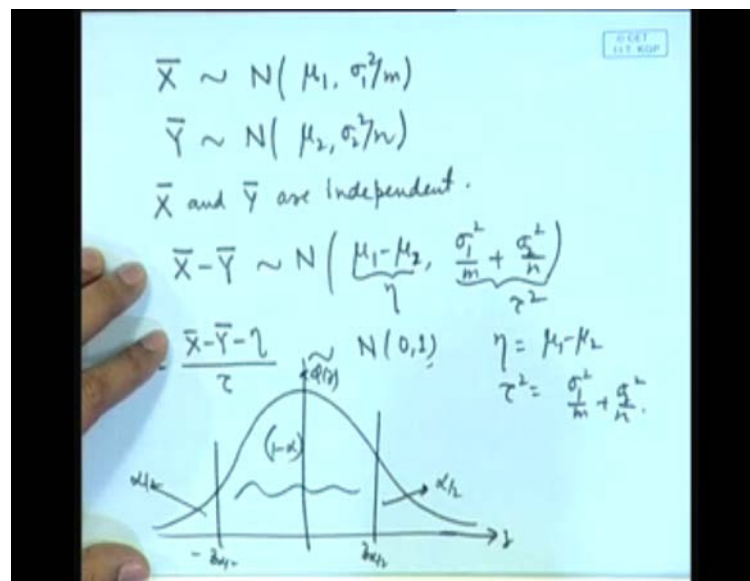 © CET
I.I.T. KGP
X̄ ~ N( μ₁, σ₁²/m)
Ȳ ~ N( μ₂, σ₂²/n)
X̄ and Ȳ are independent.
X̄-Ȳ ~ N( μ₁-μ₂, σ₁²/m + σ₂²/n )
η τ²
X̄-Ȳ-η / τ ~ N(0,1) η = μ₁-μ₂
τ² = σ₁²/m + σ₂²/n.
φ(z)
(1-α)
α/2 α/2
-z_{α/2} z_{α/2} z